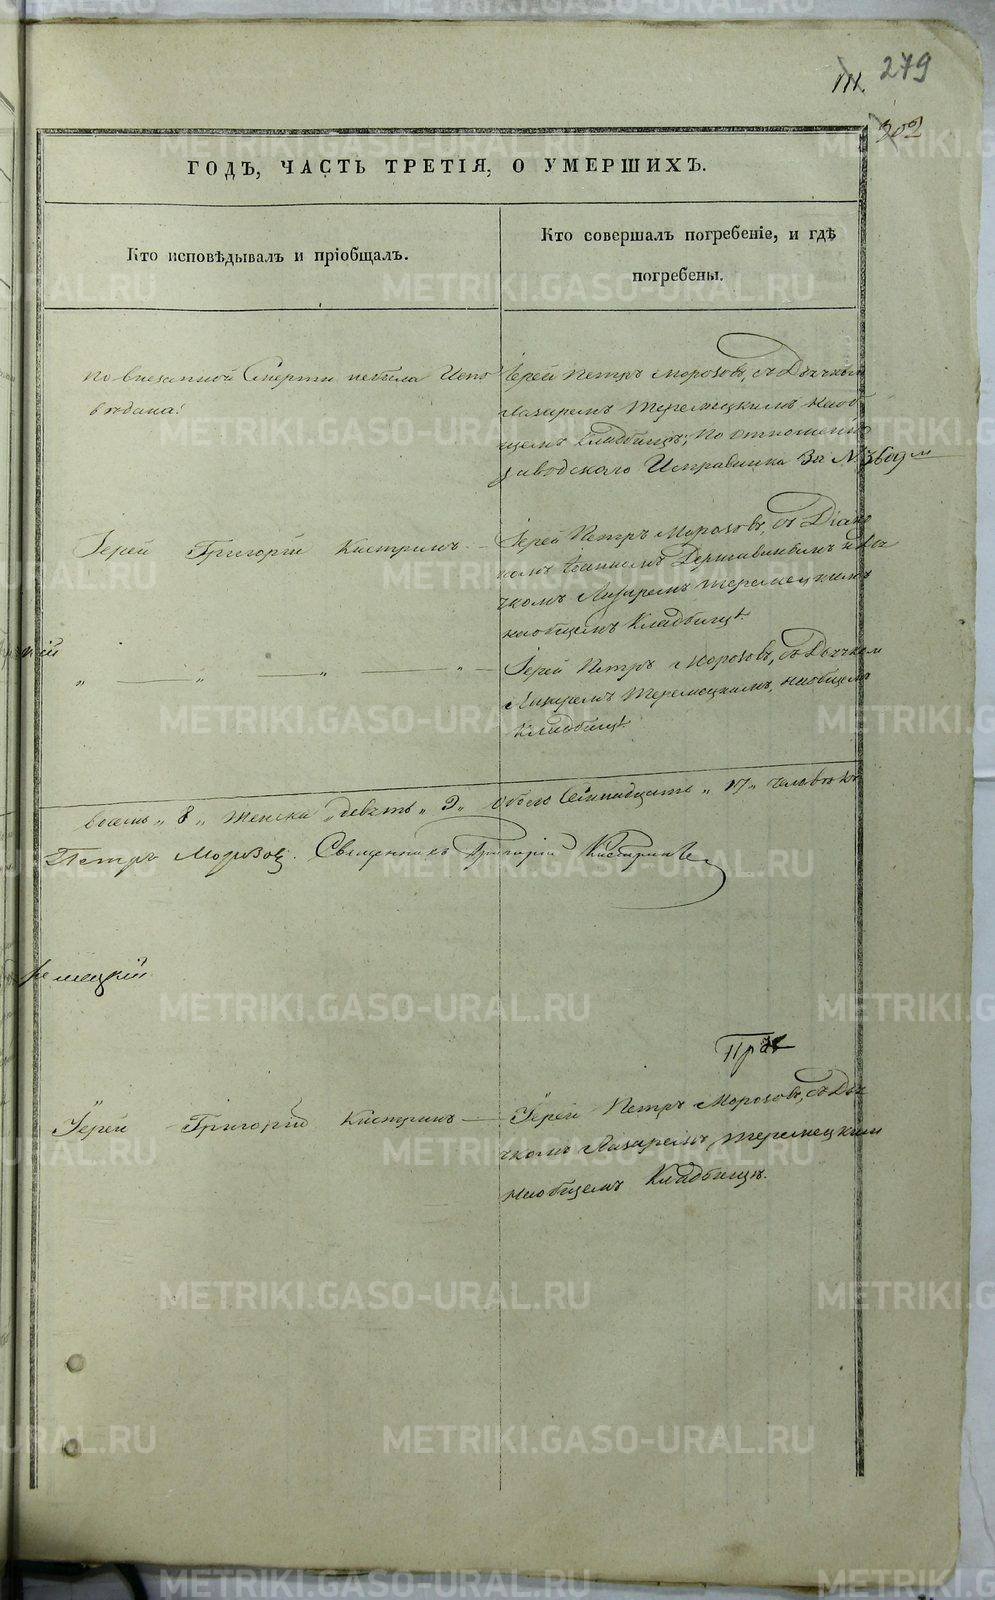 279
302
ГОДЪ, ЧАСТЬ ТРЕТІЯ, О УМЕРШИХЪ.
Кто исповѣдывалъ и пріобщалъ.
Кто совершалъ погребеніе, и гдѣ
погребены.
по внезапной Смерти небыла Испо
вѣдана.
Іерей Петръ Морозовъ, съ Дьячкомъ
Лазаремъ Теремецкимъ наоб-
щемъ Кладбищѣ, по отношенію
заводскаго Исправника За №
Іерей Григорій Кистринъ
Іерей Петръ Морозовъ, съ Діако
номъ Іоанномъ Державинымъ и Дья
чкомъ Лазаремъ Теремецкимъ
наобщемъ Кладбищѣ.
Іерей Петръ Морозовъ, съ Дьячкомъ
Лазаремъ Теремецкимъ, наобщемъ
Кладбищѣ.
восемь „8„ Женска „девять„ 9„ обоего Семнадцать „17„ человѣкъ
Петръ Морозовъ. Священникъ Григорій Кистринъ
ремецкій.
Іерей Григорій Кистринъ
Іерей Петръ Морозовъ, съ Дья
чкомъ Лазаремъ Теремецкимъ
наобщемъ Кладбищѣ.
METRIKI.GASO-URAL.RU